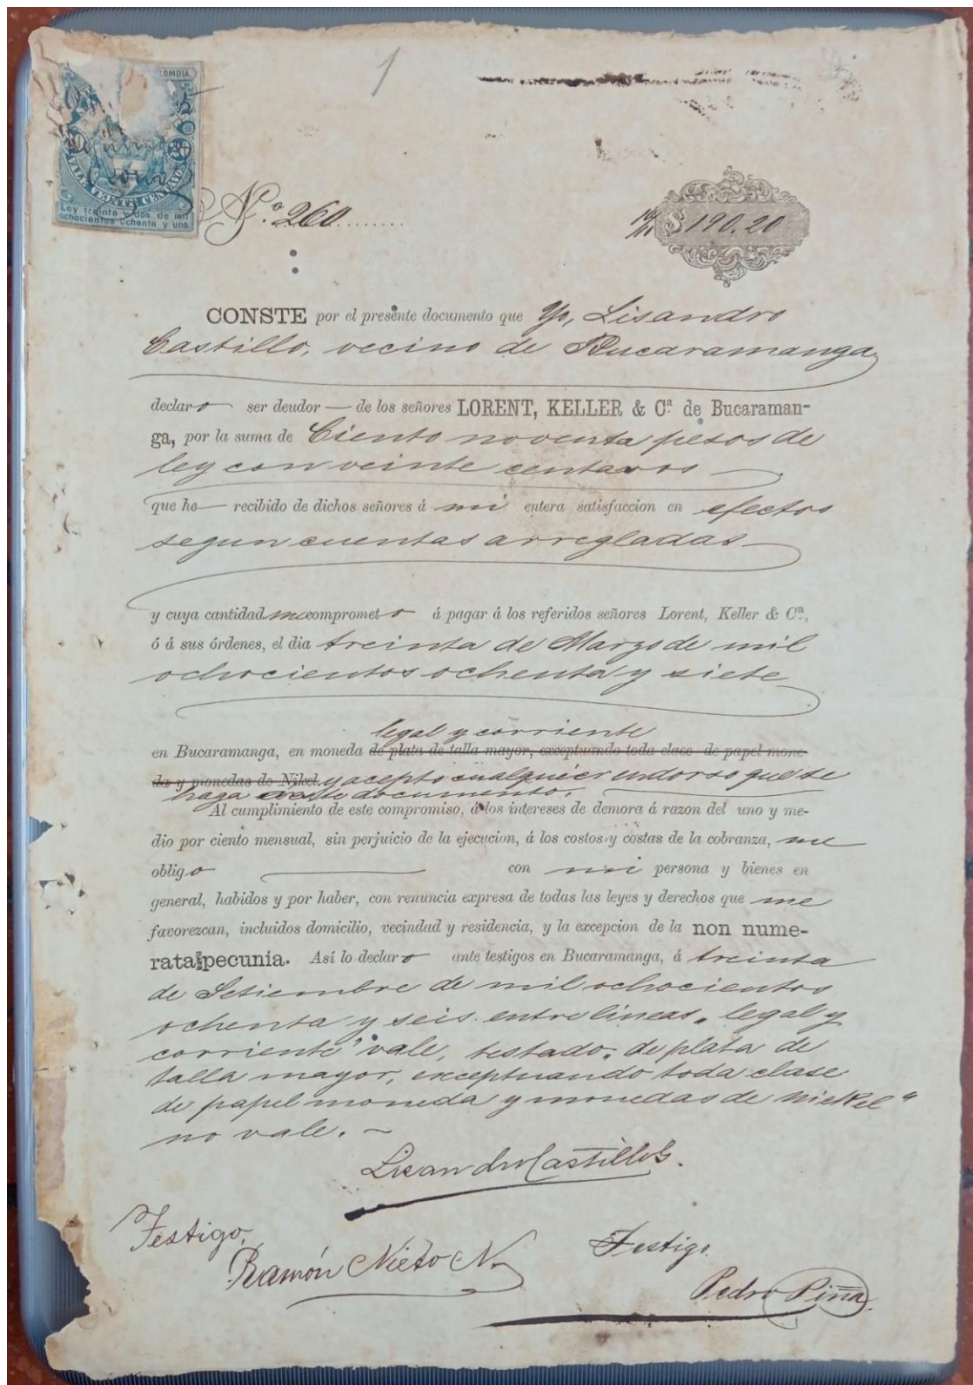 1
LOMBIA
VALE
CENTAVOS
Ley treinta y dos de mil
ochocientos ochenta y uno
N.º 260
$ 190.20
CONSTE por el presente documento que Yo, Lisandro
Castillo, vecino de Bucaramanga
declaro ser deudor — de los señores LORENT, KELLER & Cª. de Bucaraman-
ga, por la suma de Ciento noventa pesos de
ley con veinte centavos
que he — recibido de dichos señores á mi entera satisfaccion en efectos
segun cuentas arregladas
y cuya cantidad me comprometo á pagar á los referidos señores Lorent, Keller & Cª.,
ó á sus órdenes, el dia treinta de Marzo de mil
ochocientos ochenta y siete
legal y corriente
en Bucaramanga, en moneda de plata de talla mayor, exceptuando toda clase de papel mone-
da y monedas de Nikel. y acepto cualquier endorso que se
haga de este documento.
Al cumplimiento de este compromiso, á los intereses de demora á razon del uno y me-
dio por ciento mensual, sin perjuicio de la ejecucion, á los costos y costas de la cobranza, me
obligo con mi persona y bienes en
general, habidos y por haber, con renuncia expresa de todas las leyes y derechos que me
favorezcan, incluidos domicilio, vecindad y residencia, y la excepcion de la non nume-
rata pecunia. Así lo declaro ante testigos en Bucaramanga, á treinta
de Setiembre de mil ochocientos
ochenta y seis. entre lineas „ legal y
corriente" vale, testado „ de plata de
talla mayor, exceptuando toda clase
de papel moneda y monedas de Nickel "
no vale. ~
Lisandro Castillo S.
Testigo,
Ramón Nieto N.
Testigo.
Pedro Piña.